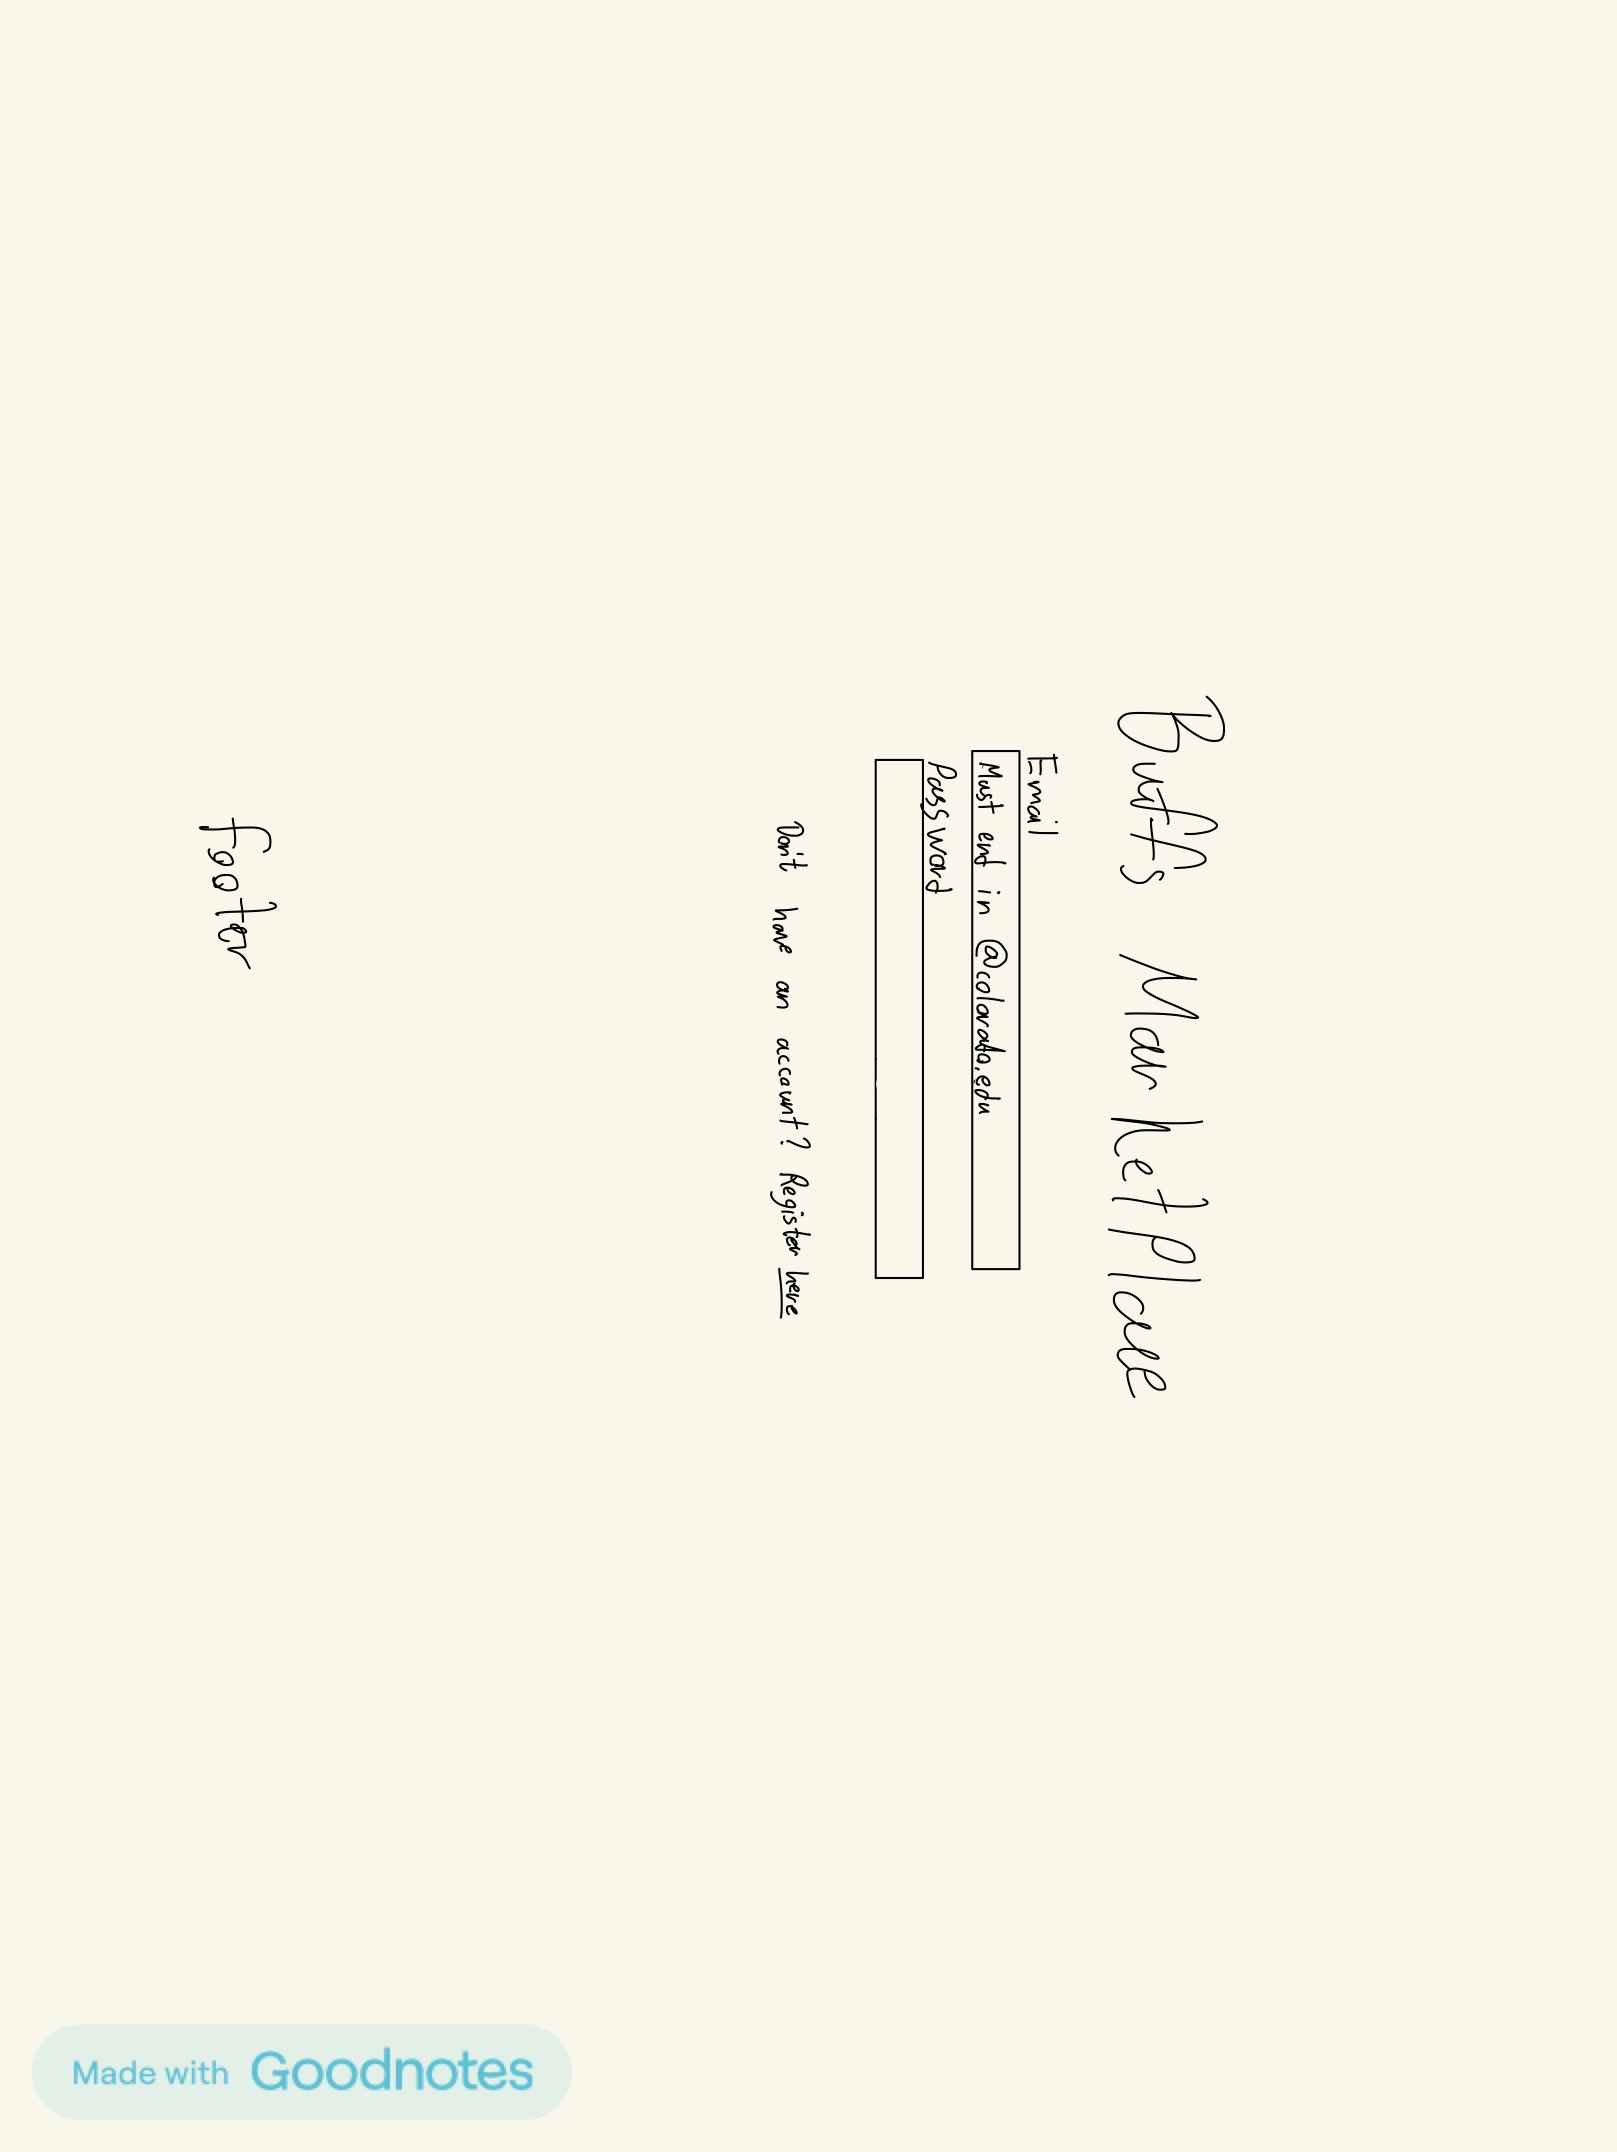 Buffs Marketplace
Email
Must end in @colorado.edu
Password
Don't have an account? Register here
footer
Made with Goodnotes